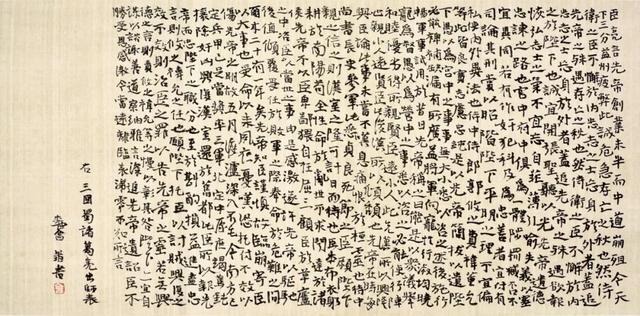 臣亮言先帝創業未半而中道崩殂今天
下三分益州疲弊此誠危急存亡之秋也然侍
衛之臣不懈於內忠志之士忘身於外者蓋追
先帝之殊遇存亡之秋也然侍衛之臣不懈於內
忠志之士忘身於外者蓋追先帝之殊遇欲報
之於陛下也誠宜開張聖聽以光先帝遺德
恢弘志士之氣不宜妄自菲薄引喻失義以塞
忠諫之路也宮中府中俱為一體陟罰臧否不
宜異同若有作奸犯科及為忠善者宜付有
司論其刑賞以昭陛下平明之理不宜偏
私使內外異法也侍中侍郎郭攸之費禕董允
等此皆良實志慮忠純是以先帝簡拔以遺陛
下愚以為宮中之事事無大小悉以咨之然後施行
必能裨補闕漏有所廣益將軍向寵性行淑均曉
暢軍事試用於昔日先帝稱之曰能是以衆議舉
寵為督愚以為營中之事悉以咨之必能使行陣
和睦優劣得所親賢臣遠小人此先漢所以興隆
也親小人遠賢臣此後漢所以傾頹也先帝在時每
與臣論此事未嘗不歎息痛恨於桓靈也侍中
尚書長史參軍此悉貞良死節之臣願陛下
親之信之則漢室之隆可計日而待也臣本布衣躬
耕於南陽苟全性命於亂世不求聞達於諸
侯先帝不以臣卑鄙猥自枉屈三顧臣於草廬
之中咨臣以當世之事由是感激遂許先帝以驅馳
後值傾覆受任於敗軍之際奉命於危難之間
爾來二十有一年矣先帝知臣謹慎故臨崩寄臣
以大事也受命以來夙夜憂嘆恐託付不效以
傷先帝之明故五月渡瀘深入不毛今南方已
定兵甲已足當獎率三軍北定中原庶竭駑鈍
攘除奸凶興復漢室還於舊都此臣所以報先
帝而忠陛下之職分也至於斟酌損益進盡忠
言則攸之禕允之任也願陛下託臣以討賊興復之
效不效則治臣之罪以告先帝之靈若無興
德之言則責攸之禕允等之慢以彰其咎陛下亦宜自
謀以咨諏善道察納雅言深追先帝遺詔臣不
勝受恩感激今當遠離臨表涕零不知所言
右三國蜀諸葛亮出師表
書